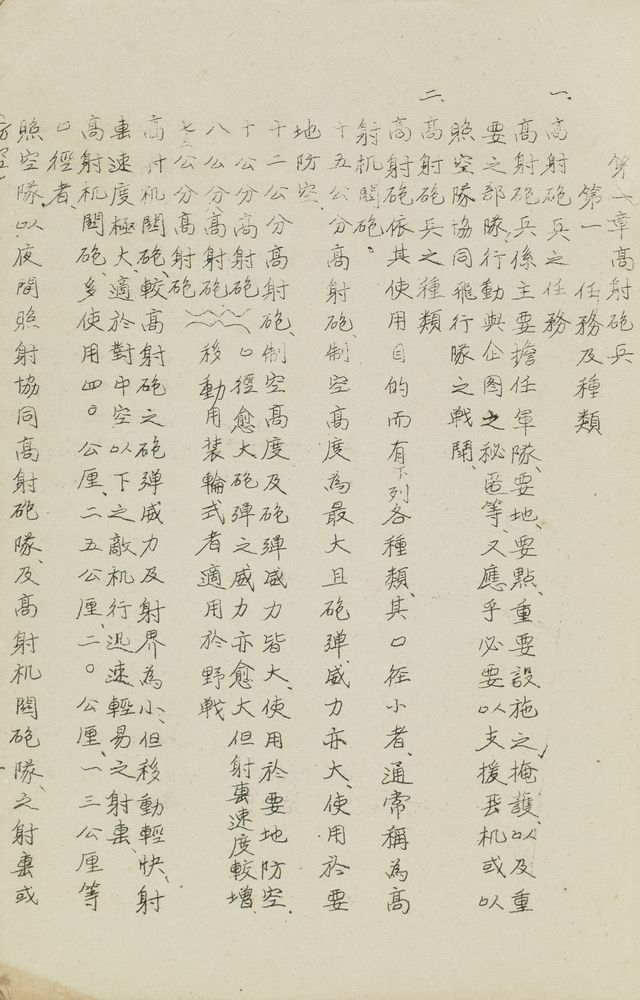 第一章高射砲兵
第一 任務及種類
一、高射砲兵之任務
高射砲兵係主要擔任軍隊、要地、要點、重要設施之掩護、以及重
要之部隊、行動與企图之秘匿等、又應乎必要以支援我机或以
照空隊協同飛行隊之戰鬪、
二、高射砲兵之種類
高射砲依其使用目的而有下列各種類、其口徑小者、通常稱為高
射机関砲。
十五公分高射砲、制空高度為最大且砲弹威力亦大、使用於要
地防空、
十二公分高射砲、制空高度及砲弹威力皆大、使用於要地防空、
十公分高射砲 口徑愈大砲弹之威力亦愈大但射击速度較增、
八公分高射砲 移動用装輪式者適用於野戰
七公分高射砲
高射机関砲、較高射砲之砲弹威力及射界為小、但移動輕快、射
击速度極大、適於對中空以下之敵机行迅速輕易之射击、
高射机関砲、多使用四〇公厘、二五公厘、二〇公厘、一三公厘等
口徑者、
照空隊、以夜間照射協同高射砲隊、及高射机関砲隊、之射击或